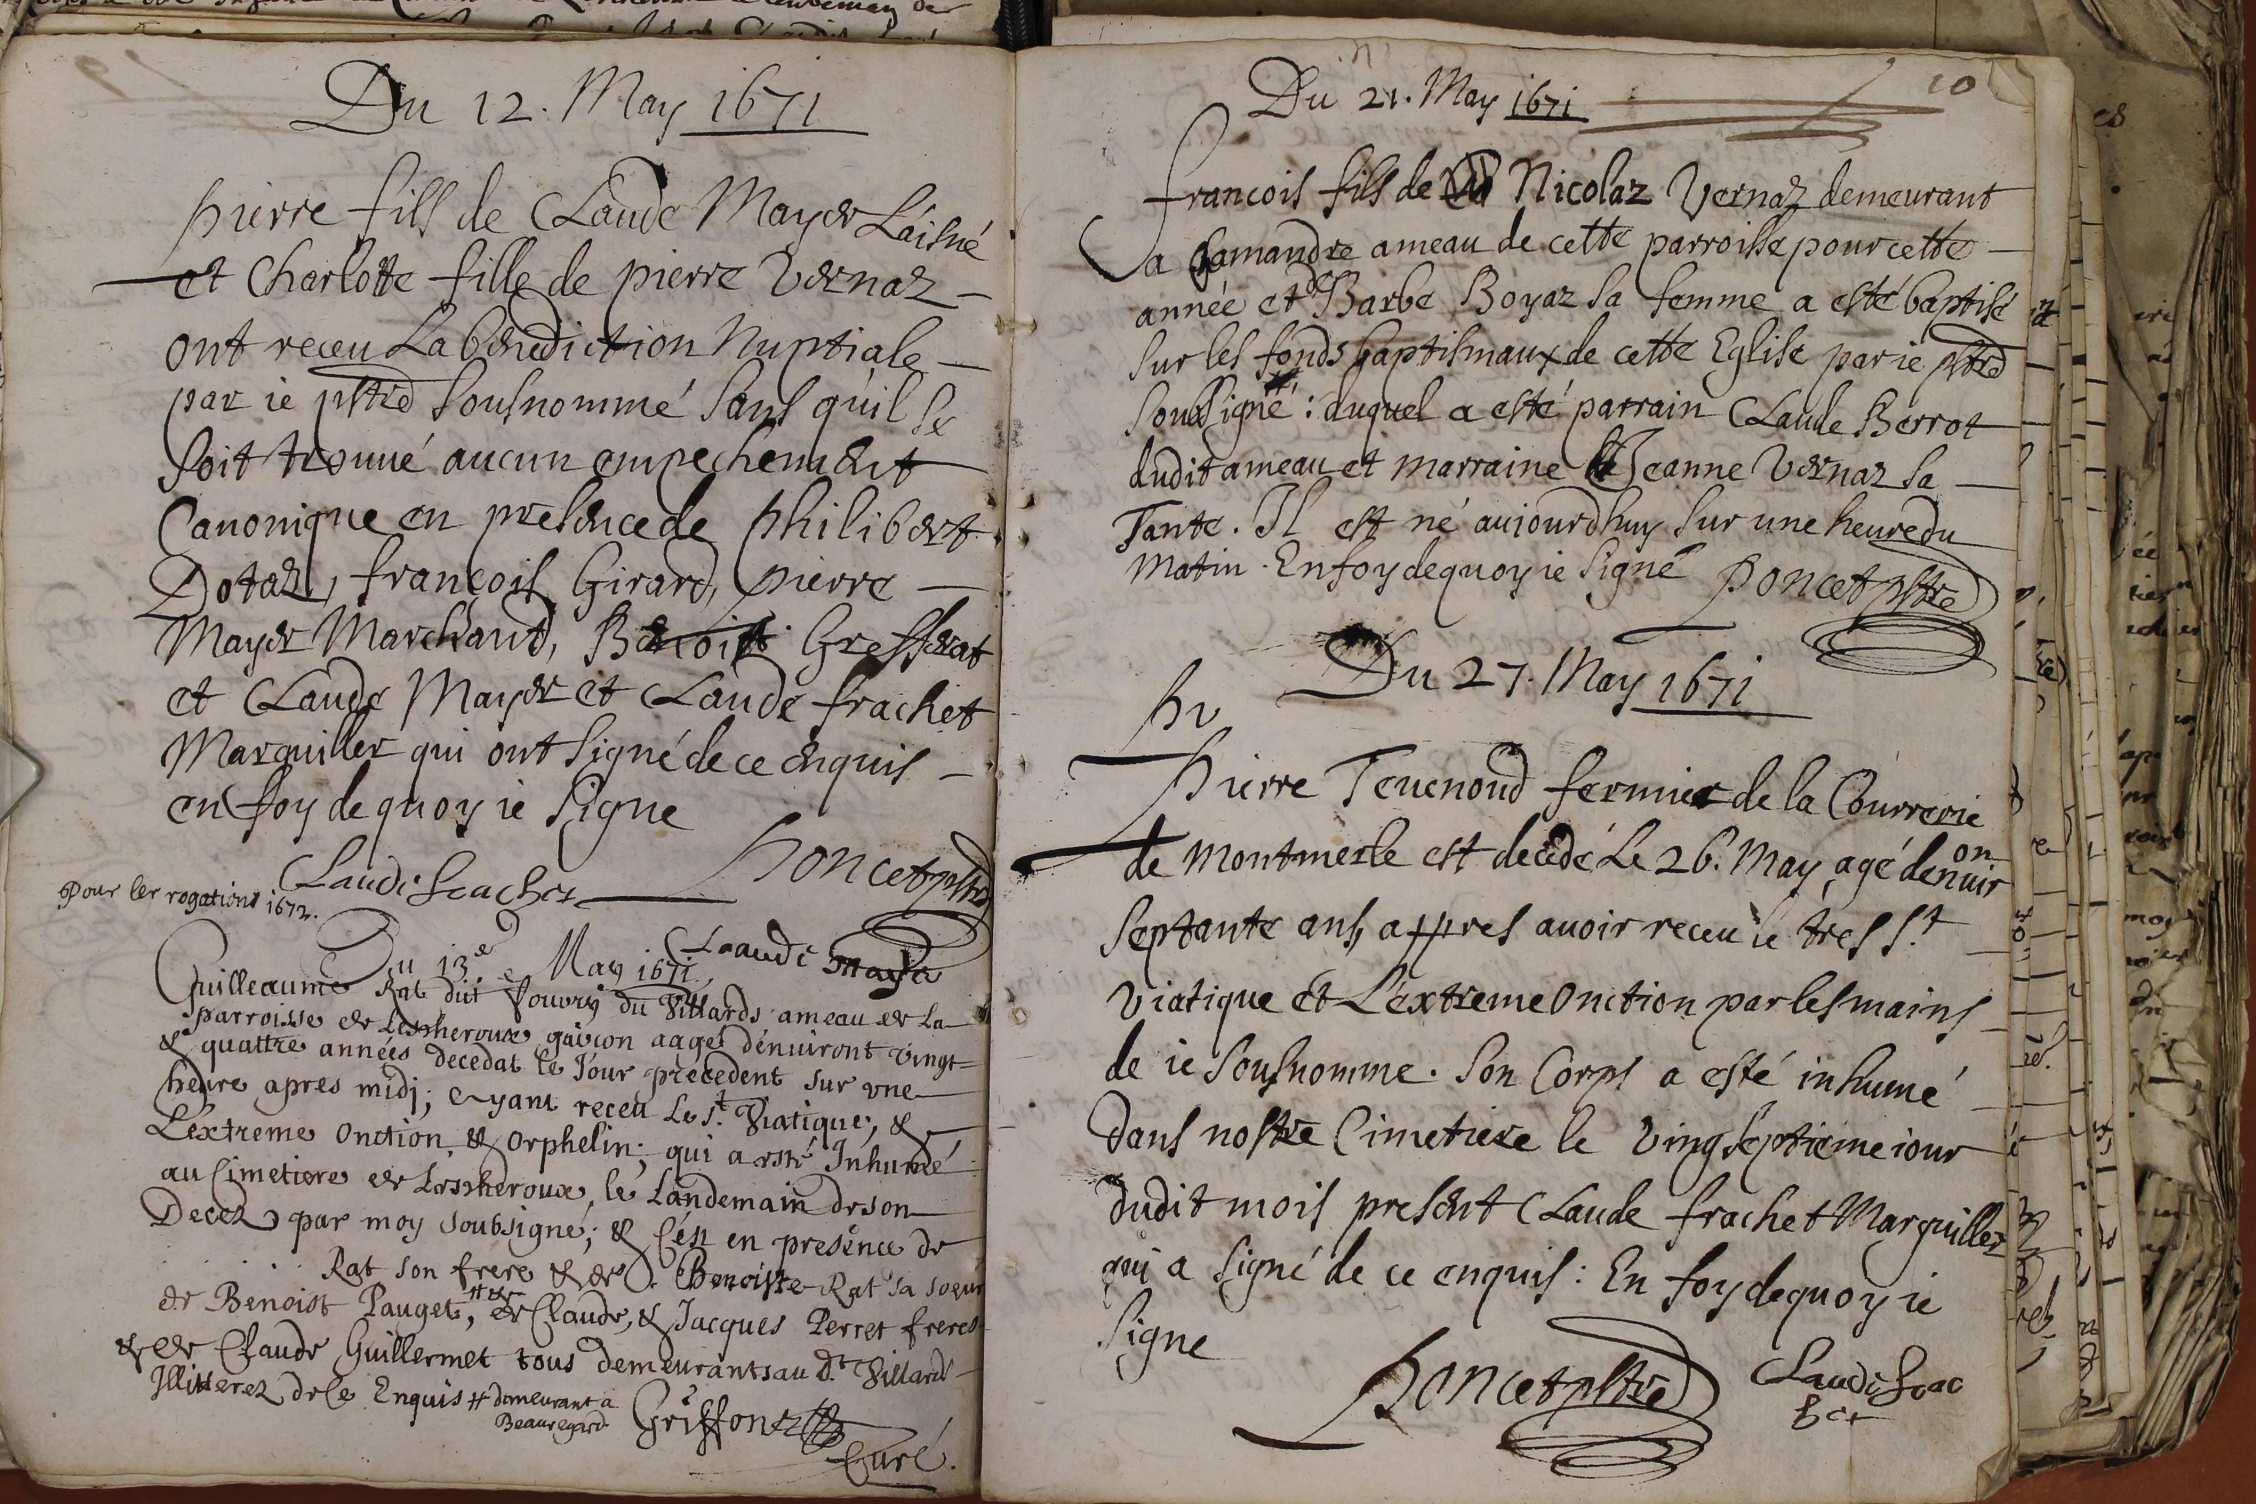 Du 12. May 1671
Pierre fils de Claude Mayer L'aisné
et Charlotte fille de pierre Vernaz
ont receu La benediction Nuptiale
par ie pstre sousnommé sans qu'il se
soit trouué aucun empechement
Canonique en presence de Philibert
Dotaz, francois Girard, pierre
Mayer Marchand, Benoist Grefferat
et Claude Mayer et Claude frachet
Marguiller qui ont signé de ce enquis
en foy de quoy ie signe
Claude frachet Poncet pstre
Pour les rogations 1672.
Claude Mayer
Du 13e May 1671
Guilleaume Rat dit du Villards ameau de La
parroisse de Lescheroux garcon aagé d'enuiront vingt
& quattre années decedat le Jour precedent sur vne
heure apres midj; ayant receu Le St. Viatique, &
L'extreme Onction, & Orphelin; qui a esté Inhumé
au Cimetiere de Lescheroux, le Landemain de son
Decez par moy soubsigné; & c'est en presence de
. . . . . Rat son frere & de . Benoiste Rat sa soeur
de Benoist Pauget, # & de Claude, & Jacques Perret freres
& de Claude Guillermet tous demeurants au dt Villard
Illitterez de ce Enquis # demeurant a
Beauregard Griffon
Curé.
10
Du 21. May 1671
francois fils de Nicolaz Vernaz demeurant
a Samandre ameau de cette parroisse pour cette
année et de Barbe Boyaz sa femme a esté baptisé
sur les fonds baptismaux de cette Eglise par ie pstre
soussigné: duquel a esté parrain Claude Berrot
dudit ameau et marraine Jeanne Vernaz sa
Tante. Il est né auiourdhuy sur une heure du
matin. En foy de quoy ie signé Poncet pstre
Du 27. May 1671
Pierre Teuenoud fermier de la Courrerie
de Montmerle est decedé Le 26. May, agé d'enuiron
septante ans, appres auoir receu le tres St
Viatique et L'extreme Onction par les mains
de ie sousnomme. Son Corps a esté inhumé
dans nostre Cimetiere le vingseptieme iour
dudit mois present Claude frachet Marguiller
qui a signé de ce enquis: En foy de quoy ie
signe
Poncet pstre Claude frac
het